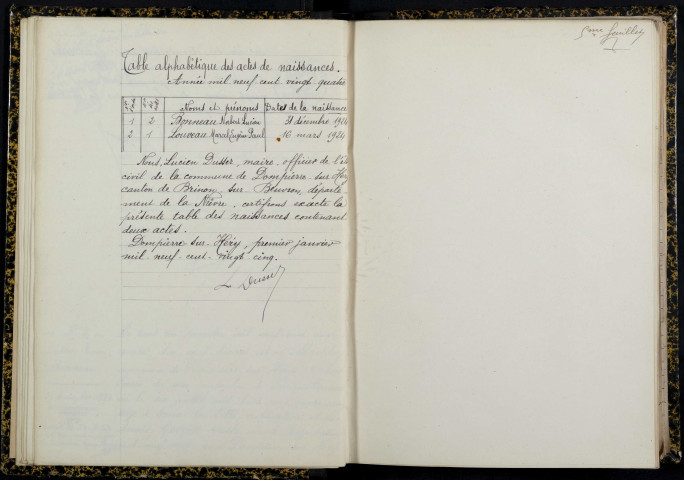 Table alphabétique des actes de naissances.
Année mil neuf cent vingt quatre
Noms et prénoms Dates de la naissance
1 2 Bonneau Robert Lucien 31 décembre 1924
2 1 Louveau Marcel Eugène Paul 16 mars 1924
Nous, Lucien Dusser, maire, officier de l'ét
civil de la commune de Dompierre-sur-Héry
canton de Brinon-sur-Beuvron, départe
ment de la Nièvre, certifions exacte la
présente table des naissances contenant
deux actes.
Dompierre-sur-Héry, premier janvier
mil-neuf-cent-vingt cinq.
L Dusser
5me feuillet